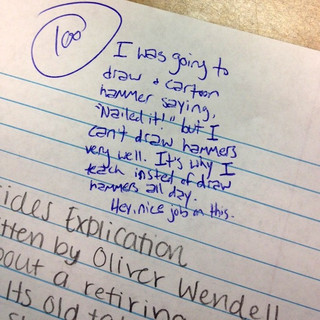 100
I was going to
draw a cartoon
hammer saying,
"Nailed it!" but I
can't draw hammers
very well. It's why I
teach insted of draw
hammers all day.
Hey, nice job on this.
icles Explication
tten by Oliver Wendell
bout a retiring
Its old to